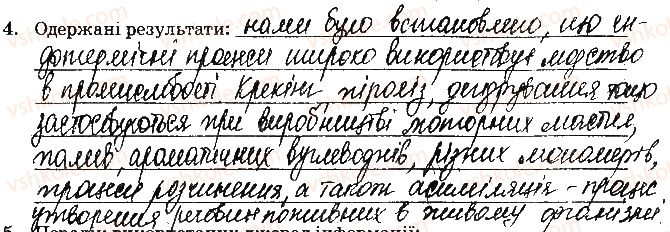 4. Одержані результати: нами було встановлено, що ен-
дотермічні процеси широко використовує людство
в промисловості. Крекінг, піроліз, дегідрування тощо
застосовуються при виробництві моторних мастил,
палив, ароматичних вуглеводнів, різних мономерів,
процеси розчинення, а також асиміляція - процес
утворення речовин поживних в живому організмі.
5. Перелік використаних джерел інформації: